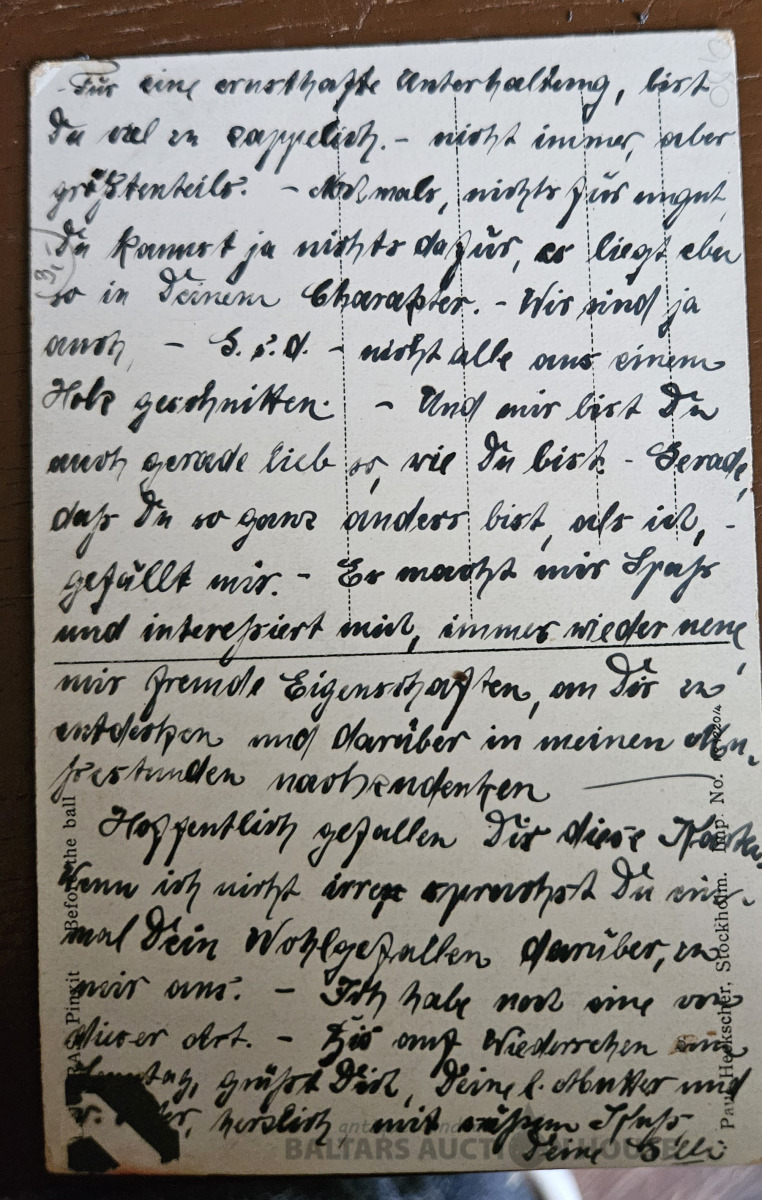 - Für eine ernsthafte Unterhaltung, bist
Du viel zu zappelich. - nicht immer, aber
größtenteils. - Nochmals, nichts für ungut
Du kannst ja nichts dafür, es liegt eben
so in Deinem Charakter. - Wir sind ja
auch, - G. s. d. - nicht alle aus einem
Holz geschnitten. - Und mir bist Du
auch gerade lieb so, wie Du bist. - Gerade,
daß Du so ganz anders bist, als ich, -
gefällt mir. - Es macht mir Spaß
und interessiert mich, immer wieder neue,
mir fremde Eigenschaften, an Dir zu
entdecken und darüber in meinen Mu-
ßestunden nachzudenken
Hoffentlich gefallen Dir diese Karten.
Wenn ich nicht irre sprachst Du ein-
mal Dein Wohlgefallen darüber, zu
mir aus. - Ich habe noch eine von
dieser Art. - Bis auf Wiedersehen am
Sonntag, grüßt Dich, Deine l. Mutter und
herzlich, mit
Deine
Pinxit Before the ball
Paul Heckscher, Stockholm. Imp. No.
BALTARS AUCT HOUSE